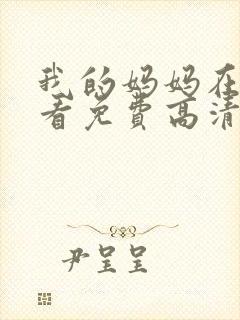 我的妈妈在
看免费高清
尹呈呈